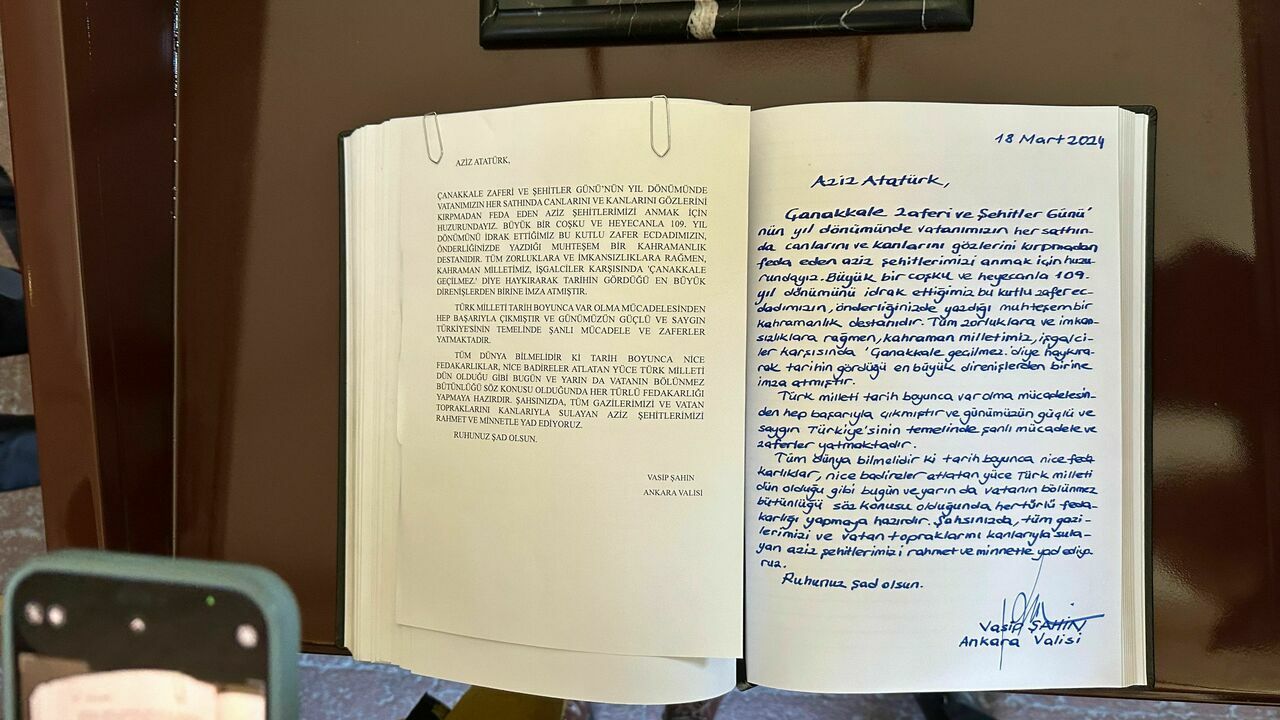 AZİZ ATATÜRK,
ÇANAKKALE ZAFERİ VE ŞEHİTLER GÜNÜ'NÜN YIL DÖNÜMÜNDE
VATANIMIZIN HER SATHINDA CANLARINI VE KANLARINI GÖZLERİNİ
KIRPMADAN FEDA EDEN AZİZ ŞEHİTLERİMİZİ ANMAK İÇİN
HUZURUNDAYIZ. BÜYÜK BİR COŞKU VE HEYECANLA 109. YIL
DÖNÜMÜNÜ İDRAK ETTİĞİMİZ BU KUTLU ZAFER ECDADIMIZIN,
ÖNDERLİĞİNİZDE YAZDIĞI MUHTEŞEM BİR KAHRAMANLIK
DESTANIDIR. TÜM ZORLUKLARA VE IMKANSIZLIKLARA RAĞMEN,
KAHRAMAN MİLLETİMİZ, İŞGALCİLER KARŞISINDA 'ÇANAKKALE
GEÇİLMEZ.' DİYE HAYKIRARAK TARİHİN GÖRDÜĞÜ EN BÜYÜK
DİRENİŞLERDEN BİRİNE IMZA ATMIŞTIR.
TÜRK MİLLETİ TARİH BOYUNCA VAR OLMA MÜCADELESINDEN
HEP BAŞARIYLA ÇIKMIŞTIR VE GÜNÜMÜZÜN GÜÇLÜ VE SAYGIN
TÜRKİYE'SİNİN TEMELİNDE ŞANLI MÜCADELE VE ZAFERLER
YATMAKTADIR.
TÜM DÜNYA BİLMELİDİR Kİ TARİH BOYUNCA NİCE
FEDAKARLIKLAR, NICE BADIRELER ATLATAN YÜCE TÜRK MİLLETİ
DÜN OLDUĞU GİBİ BUGÜN VE YARIN DA VATANIN BÖLÜNMEZ
BÜTÜNLÜĞÜ SÖZ KONUSU OLDUĞUNDA HER TÜRLÜ FEDAKARLIĞI
YAPMAYA HAZIRDIR. ŞAHSINIZDA, TÜM GAZİLERİMİZİ VE VATAN
TOPRAKLARINI KANLARIYLA SULAYAN AZİZ ŞEHİTLERİMİZİ
RAHMET VE MİNNETLE YAD EDİYORUZ.
RUHUNUZ ŞAD OLSUN.
VASİP ŞAHİN
ANKARA VALİSİ
18 Mart 2024
Aziz Atatürk,
Çanakkale Zaferi ve Şehitler Günü'
nün yıl dönümünde vatanımızın her sathın-
da canlarını ve kanlarını gözlerini kırpmadan
feda eden aziz şehitlerimizi anmak için huzu-
rundayız. Büyük bir coşku ve heyecanla 109.
yıl dönümünü idrak ettiğimiz bu kutlu zafer ec-
dadımızın, önderliğinizde yazdığı muhteşem bir
kahramanlık destanıdır. Tüm zorluklara ve imkan-
sızlıklara rağmen, kahraman milletimiz, işgalci-
ler karşısında 'Çanakkale geçilmez.' diye haykıra-
rak tarihin gördüğü en büyük direnişlerden birine
imza atmıştır.
Türk milleti tarih boyunca var olma mücadelesin-
den hep başarıyla çıkmıştır ve günümüzün güçlü ve
saygın Türkiye'sinin temelinde şanlı mücadele ve
zaferler yatmaktadır.
Tüm dünya bilmelidir ki tarih boyunca nice feda-
karlıklar, nice badireler atlatan yüce Türk milleti
dün olduğu gibi bugün ve yarın da vatanın bölünmez
bütünlüğü söz konusu olduğunda her türlü feda-
karlığı yapmaya hazırdır. Şahsınızda, tüm gazi-
lerimizi ve vatan topraklarını kanlarıyla sula-
yan aziz şehitlerimizi rahmet ve minnetle yad ediyo-
ruz.
Ruhunuz şad olsun.
Vasip ŞAHİN
Ankara Valisi